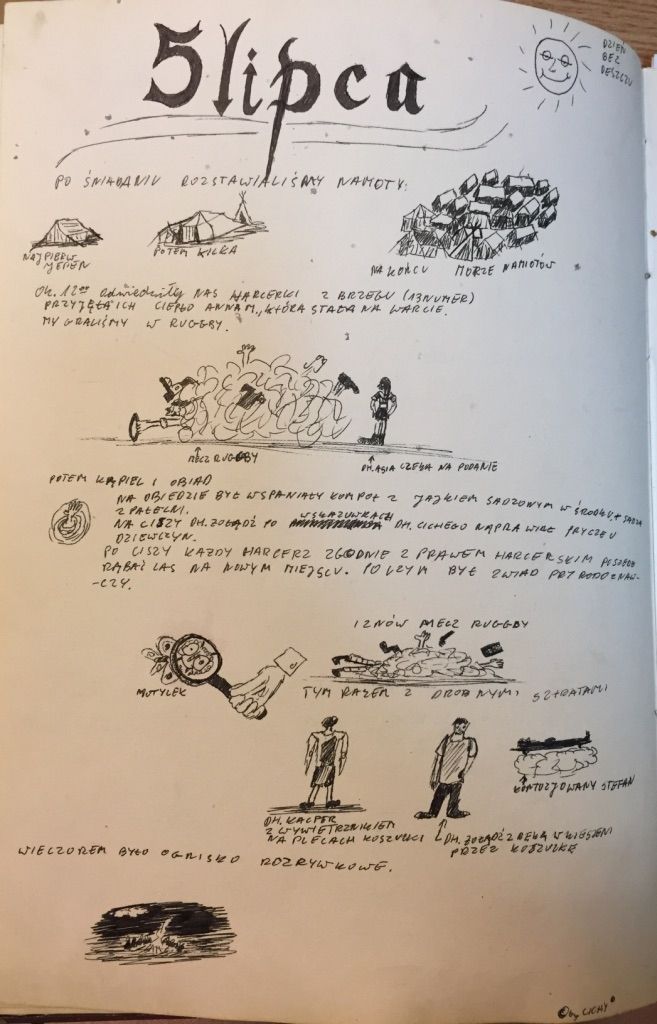 5 lipca
DZIEŃ
BEZ
DESZCZU
PO ŚNIADANIU ROZSTAWIALIŚMY NAMIOTY:
NAJPIERW
JEDEN
POTEM KILKA
NA KOŃCU MORZE NAMIOTÓW
OK. 12⁰⁰ odwiedziły NAS HARCERKI Z BRZEGU (13 NUMER)
PRZYJĘŁA ICH CIEPŁO ANNA M., KTÓRA STAŁA NA WARCIE.
MY GRALIŚMY W RUGGBY.
MECZ RUGGBY
DH. ASIA CZEKA NA PODANIE
POTEM KĄPIEL I OBIAD
NA OBIEDZIE BYŁ WSPANIAŁY KOMPOT Z JAJKIEM SADZONYM W ŚRODKU +
Z PATELNI.
NA CISZY DH. ŻOŁĄDŹ PO WSKAZÓWKACH DH. CICHEGO NAPRAWIAŁ PRYCZE U
DZIEWCZYN.
PO CISZY KAŻDY HARCERZ ZGODNIE Z PRAWEM HARCERSKIM POSZEDŁ
RĄBAĆ LAS NA NOWYM MIEJSCU. PO CZYM BYŁ ZWIAD PRYRODOZNAW-
-CZY.
I ZNÓW MECZ RUGGBY
MOTYLEK
TYM RAZEM Z DROBNYMI STRATAMI
KONTUZJOWANY STEFAN
DH. KACPER
Z WYWIETRZNIKIEM
NA PLECACH KOSZULKI
DH. ŻOŁĄDŹ Z RĘKĄ W KIESZENI
PRZEZ KOSZULKĘ
WIECZOREM BYŁO OGNISKO ROZRYWKOWE.
© by CICHY